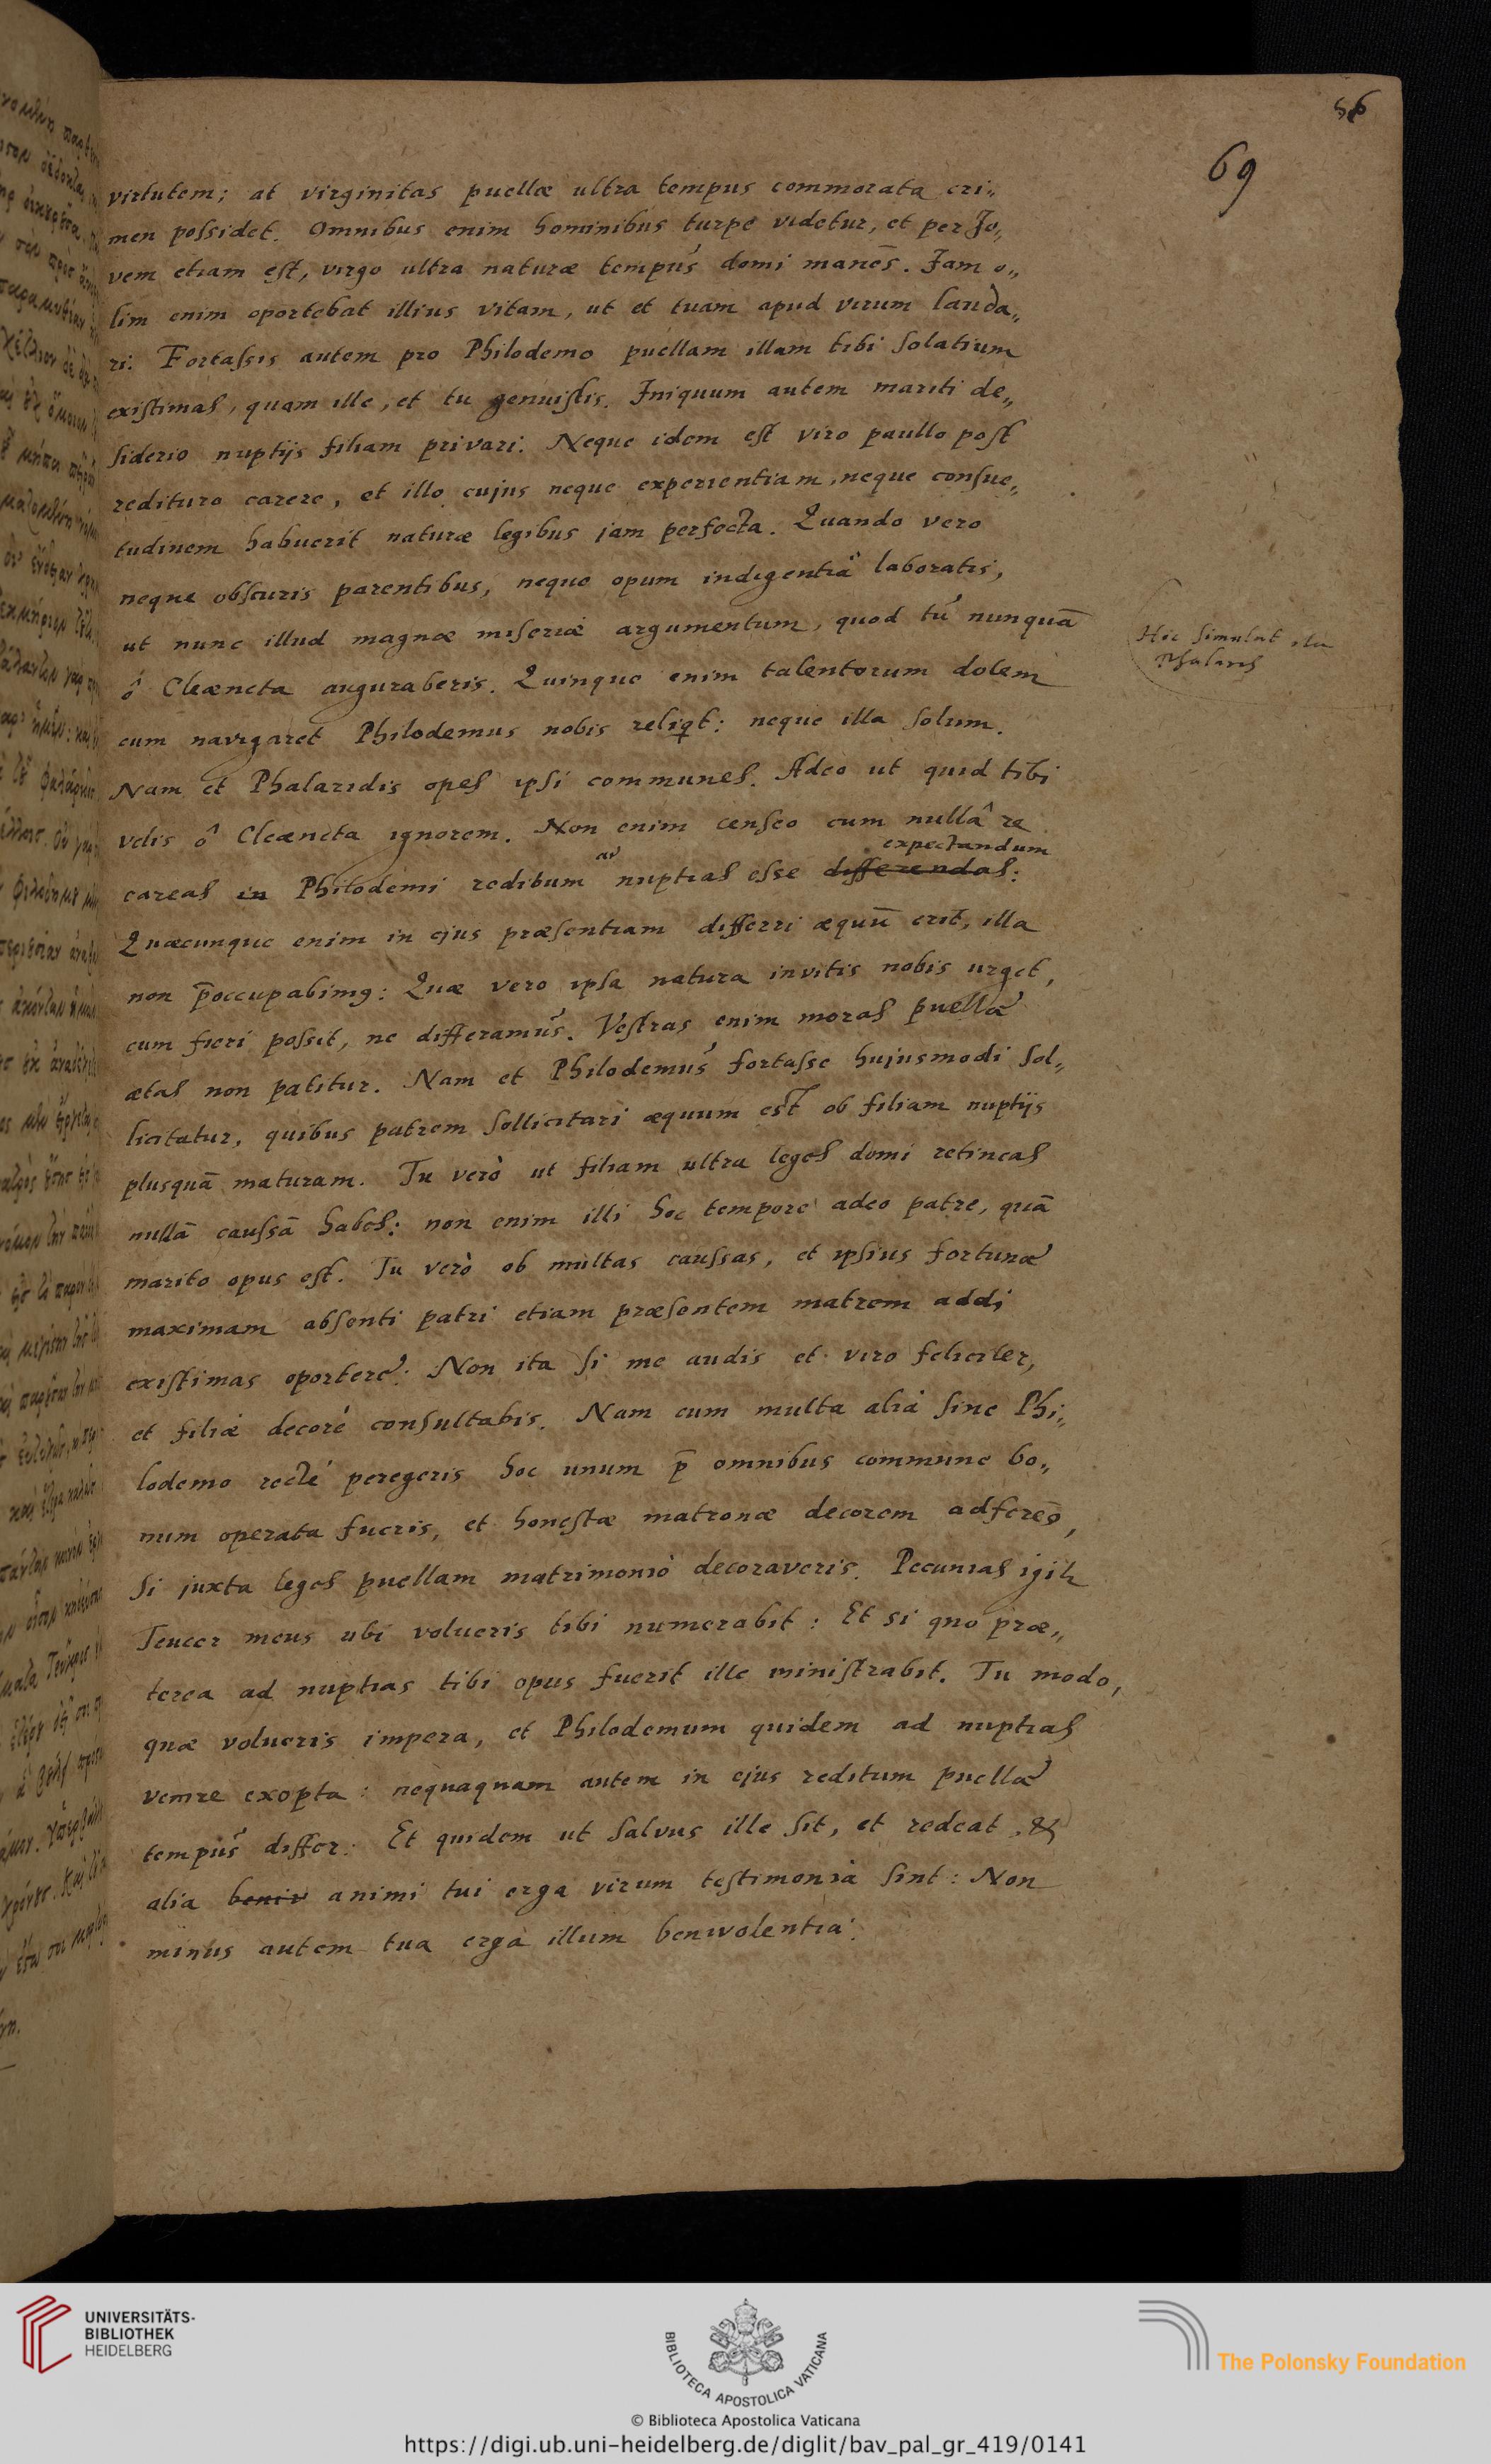 56
69
virtutem; at virginitas puellæ ultra tempus commorata cri„
men possidet. Omnibus enim hominibus turpe videtur, et per Jo„
vem etiam est, virgo ultra naturæ tempus domi manēs. Jam o„
lim enim oportebat illius vitam, ut et tuam apud virum lauda„
ri. Fortassis autem pro Philodemo puellam illam tibi solatium
existimas, quam ille, et tu genuistis. Iniquum autem mariti de„
siderio nuptijs filiam privari. Neque idem est viro paullo post
redituro carere, et illo cujus neque experientiam, neque consue„
tudinem habuerit naturæ legibus jam perfecta. Quando vero
neque obscuris parentibus, neque opum indigentiâ laboratis,
ut nunc illud magnæ miseriæ argumentum, quod tu nunquā
ô Cleæneta auguraberis. Quinque enim talentorum dotem
Hic simulat
Phalaris
cum navigaret Philodemus nobis reliqt: neque illa solum.
Nam et Phalaridis opes ipsi communes. Adeo ut quid tibi
velis ô Cleæneta ignorem. Non enim censeo cum nullâ re
expectandum
careas in Philodemi reditum nuptias esse differendas:
Quæcunque enim in ejus præsentiam differri æquū erit, illa
non p̄occupabimꝰ: Quæ vero ipsa natura invitis nobis urget,
cum fieri possit, ne differamus. Vestras enim moras puellæ
ætas non patitur. Nam et Philodemus fortasse hujusmodi sol„
licitatur, quibus patrem sollicitari æquum est ob filiam nuptijs
plusquā maturam. Tu verò ut filiam ultra leges domi retineas
nullā caussā habes: non enim illi hoc tempore adeo patre, quā
marito opus est. Tu verò ob multas caussas, et ipsius fortunæ
maximam absenti patri etiam præsentem matrem addi
existimas oportere. Non ita si me audis et viro feliciter,
et filiæ decorè consultabis. Nam cum multa alia sine Phi„
lodemo rectè peregeris hoc unum p̄ omnibus commune bo„
num operata fueris, et honestæ matronæ decorem adferēs,
si juxta leges puellam matrimonio decoraveris. Pecunias igit
Teucer meus ubi volueris tibi numerabit: Et si quo præ„
terea ad nuptias tibi opus fuerit ille ministrabit. Tu modo,
quæ volueris impera, et Philodemum quidem ad nuptias
venire exopta: nequaquam autem in ejus reditum puellæ
tempus differ. Et quidem ut salvus ille sit, et redeat, &
alia beniv animi tui erga virum testimonia sint: Non
minus autem tua erga illum benivolentia.
UNIVERSITÄTS-
BIBLIOTHEK
HEIDELBERG
BIBLIOTECA APOSTOLICA VATICANA
The Polonsky Foundation
© Biblioteca Apostolica Vaticana
https://digi.ub.uni-heidelberg.de/diglit/bav_pal_gr_419/0141